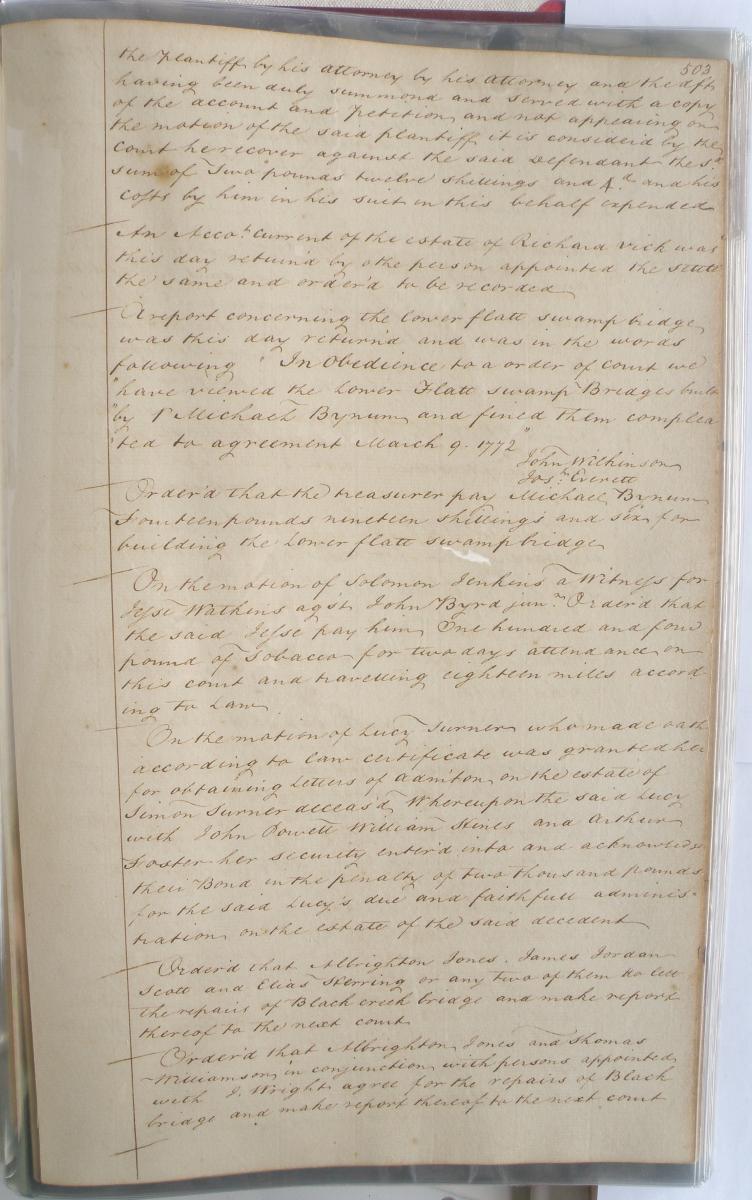 503
the plantiff by his attorney by his attorney and the dft
having been duly summond and served with a copy
of the account and Petition and not appearing on
the motion of the said plantiff it is consider'd by the
Court he recover against the said Defendant the sd
sum of Two pounds twelve shillings and 4.d and his
costs by him in his suit in this behalf expended
An Acco.t Current of the estate of Richard Vick was
this day return'd by othe person appointed the settle
the same and order'd to be recorded
A report concerning the lower flatt swamp bridge
was this day return'd and was in the words
following " In Obedience to a order of Court we
"have viewed the Lower Flatt swamp Bridges built
"by Michael Bynum and fined them complea
"ted to agreement March 9. 1772"
John Wilkinson
Jos.h Everett
Order'd that the treasurer pay Michael Bynum
Fourteen pounds nineteen shillings and six for
building the Lower flatt swamp bridge
On the motion of Solomon Jenkins a Witness for
Jesse Watkins agst John Byrd jun.r Order'd that
the said Jesse pay him One hundred and four
pound of Tobacco for two days attendance on
this court and travelling eighteen miles accord
ing to Law
On the motion of Lucy Turner who made oath
according to law certificate was granted her
for obtaining Letters of admiton on the estate of
Simon Turner deceas'd Whereupon the said Lucy
with John Powell William Hines and Arthur
Foster her security enter'd into and acknowledge
their Bond in the penalty of two thousand pounds
for the said Lucy's due and faithfull adminis-
tration on the estate of the said decedent
Order'd that Albrighton Jones. James Jordan
Scott and Elias Herring or any two of them do lett
the repairs of Black creek bridge and make report
thereof to the next court
Order'd that Albrighton Jones and Thomas
Williamson in conjunction with persons appointed
with J. Wright agree for the repairs of Black
bridge and make report thereof to the next court